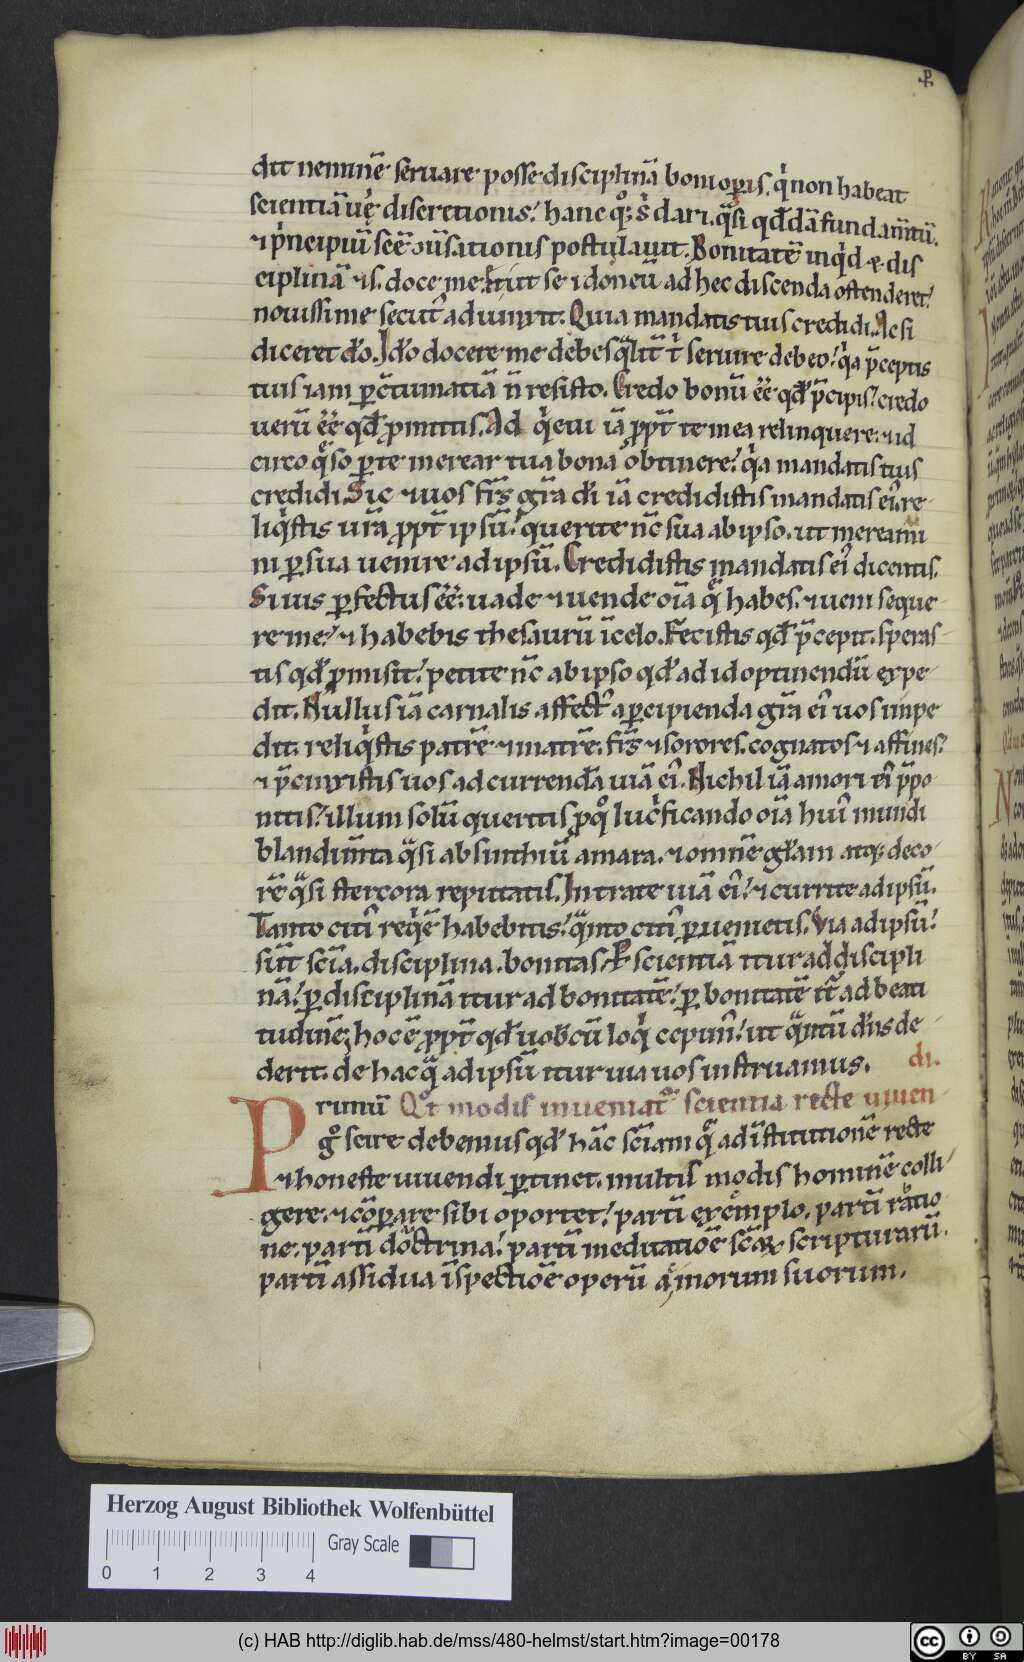 dit neminē seruare posse disciplinā boni op̄is. qͥ non habeat
scientiā uerę discretionis. hanc qͦ; s̄ dari. qͣsi qđdā fundam̄tū.
⁊ pͥncipiū scē ꝯūsationis postulauit. Bonitatē inqͥd ⁊ dis
ciplinā ⁊ s. doce me. Et ut se idoneū ad hec discenda ostenderet.
nouissime secut᷒ adiunxit. Quia mandatis tuis credidi. Ac si
diceret đo. Iđo docere me debes qͣlit̄ t̄ seruire debeo. qͥa p̄ceptis
tuis iam p̱ ꝯtumatiā n̄ resisto. Credo bonū ēē qđ p̄cipis. credo
uerū ēē qđ ꝓmittis. Ad qͥ etui iā ꝓpt̄ te mea relinquere. ⁊ id
circo qͣso p̱ te merear tua bona obtinere. qͥa mandatis tuis
credidi. Sic ⁊ uos fr̄s gr̄a dī iā credidistis mandatis ei᷒. re
liqͥstis ur̄a ꝓpt̄ ipsū. querite nc̄ sua ab ipso. ut mereami
ni p̱ sua uenire ad ipsū. Credidistis mandatis ei᷒ dicentis.
Si uis p̱fectus ēē. uade ⁊ uende oīa qͣ habes. ⁊ ueni seque
re me. ⁊ habebis thesaurū ī celo. Fecistis qđ p̄cepit. speras
tis qđ ꝓmisit. petite nc̄ ab ipso qđ ad id optinendū expe
dit. Nullus iā carnalis affect᷒ a p̱cipienda gr̄a ei᷒ uos impe
dit. reliqͥstis patrē ⁊ matrē. fr̄s ⁊ sorores. cognatos ⁊ affines.
⁊ p̄cinxistis uos ad currendā uiā ei᷒. Nichil iā amori ei᷒ p̄po
nitis. illum solū queritis. ꝓ qͦ luc̄ficando oīa hui᷒ mundi
blandim̄ta qͣsi absinthiū amara. ⁊ omnē gl̄am atq; deco
rē qͣsi stercora reputatis. Intrate uiā ei᷒. ⁊ currite ad ipsū.
Tanto citi᷒ reqͥē habebitis. qͣnto citi᷒ p̱uenietis. Via ad ipsū.
sūt scīa. disciplina. bonitas. P̱ scientiā itur ad discipli
nā. p̱ disciplinā itur ad bonitatē. p̱ bonitatē it᷑ ad beati
tudinē. hoc ē ꝓpt̄ qđ uobcū loqͥ cepim᷒. ut qͣntū dn̄s de
derit. de hac qͣ ad ipsū itur uia uos instruamus. di.
Primū Qͦt modis inueniat᷑ scientia recte uiuen
gͦ scire debemus qđ hāc scīam qͣ ad īstitutionē recte
⁊ honeste uiuendi p̱tinet. multis modis hominē colli
gere. ⁊ cōp̱are sibi oportet. partī exemplo. partī ratio
ne. partī doctrina. partī meditatiōe scāꝝ scripturarū.
partī assidua īspectiōe operū ac morum suorum.
Herzog August Bibliothek Wolfenbüttel
Gray Scale
0 1 2 3 4
(c) HAB http://diglib.hab.de/mss/480-helmst/start.htm?image=00178
cc BY SA